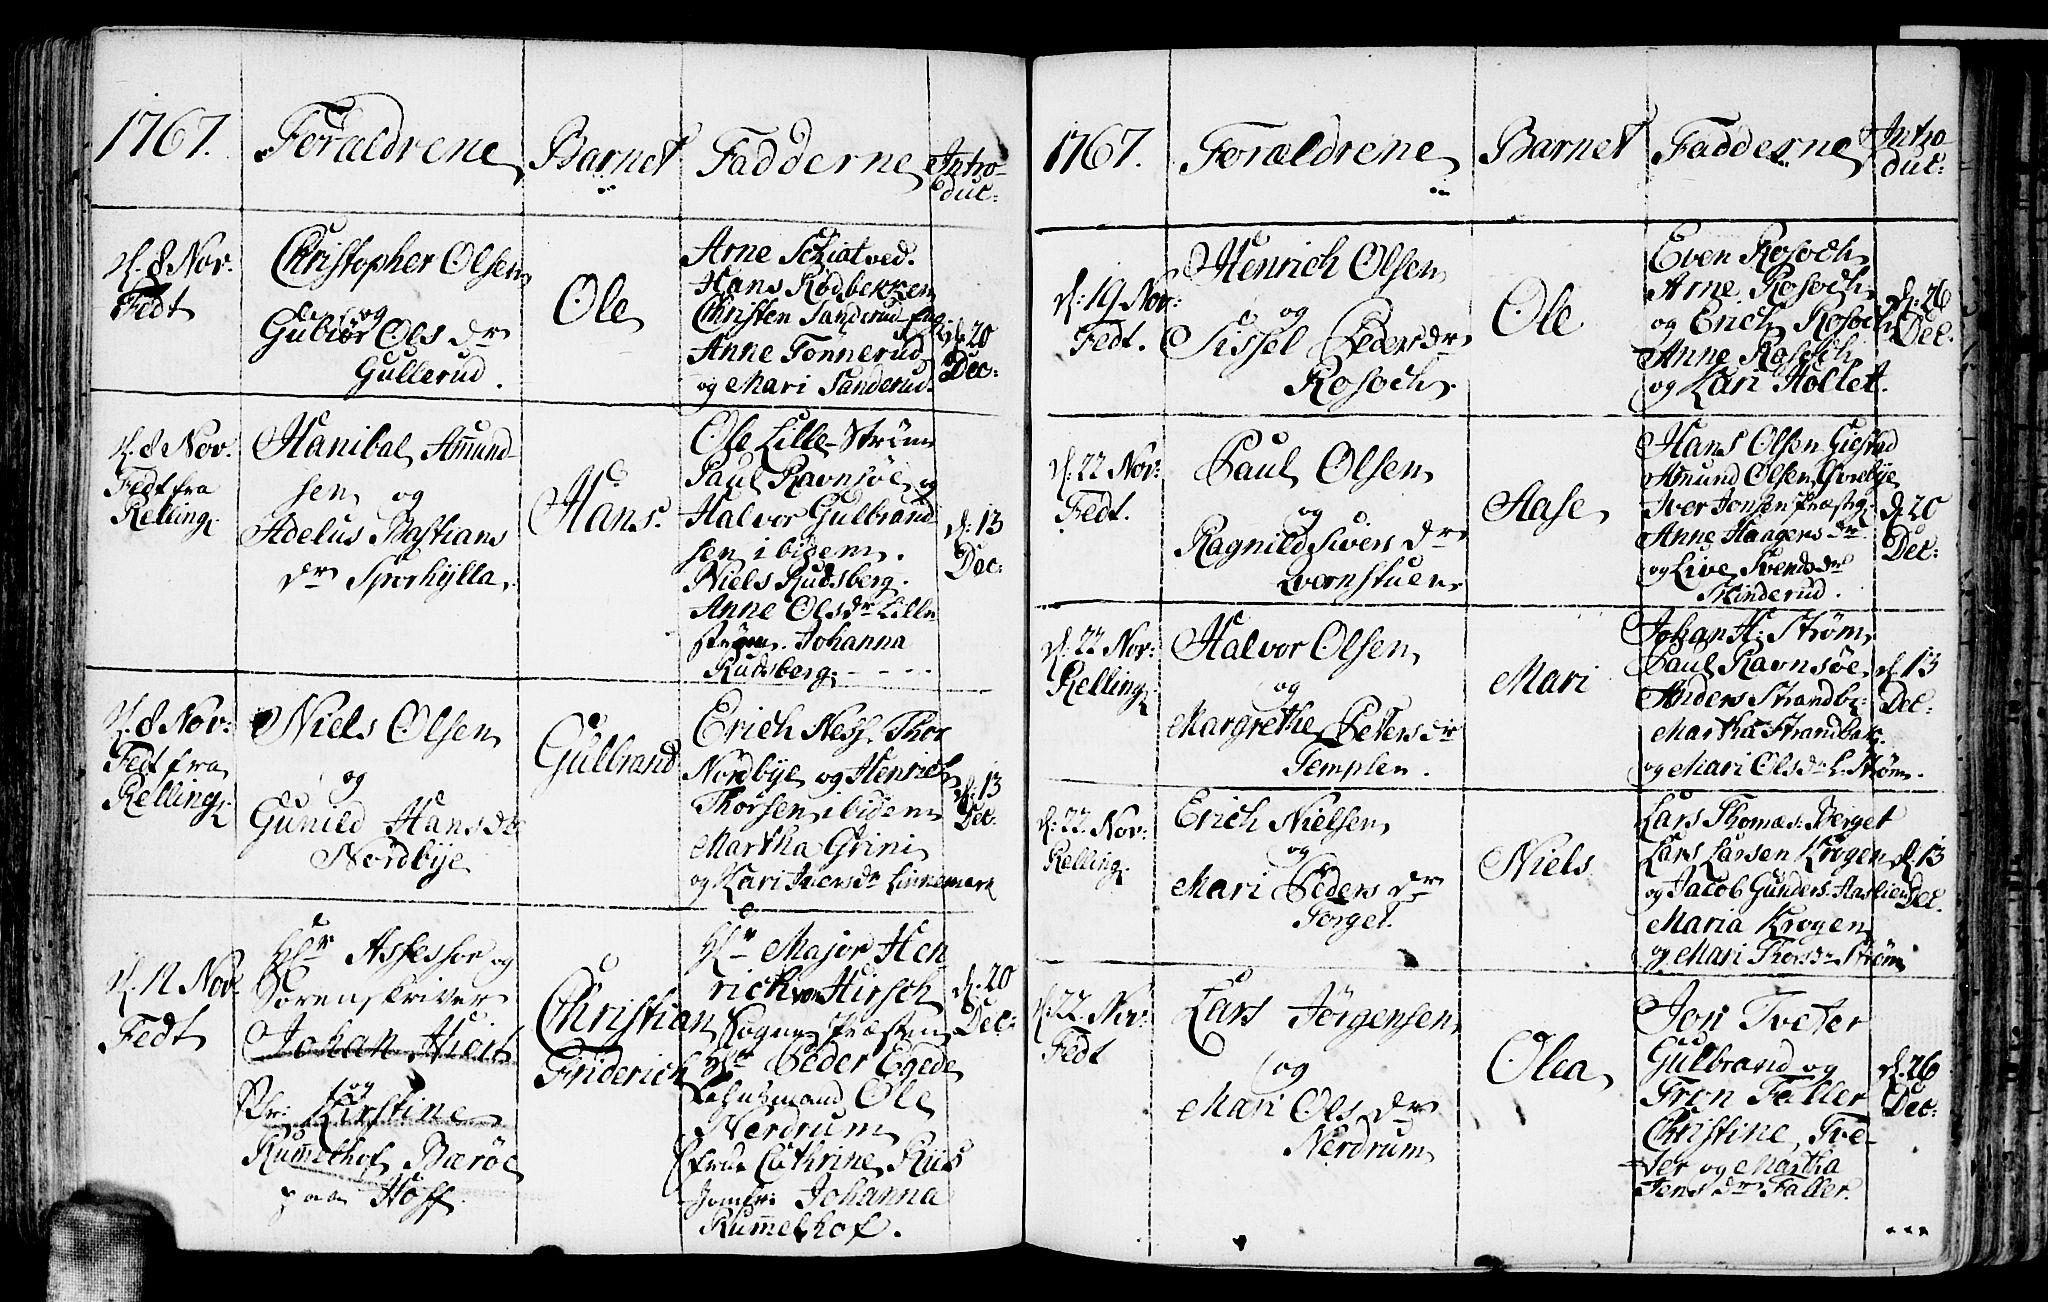 1767.
Foraldrene
Barnet
Fadderne
Intro-
duc:
d. 8 Nov:
Fedt
Christopher Olsen
og
Gubiør Ols dr
Gullerud.
Ole
Arne Schiatved.
Hans Rødbekken
Christen Sanderud-Eng
Anne Tønnerud
og Mari Sanderud.
d: 20
Dec:
d. 8 Nov.
Fedt fra
Relling
Hanibal Amund-
sen og
Adelus Bastians
dr Sporhylla.
Hans.
Ole Lille-Strøm
Paul Ravnsøe og
Halvor Gulbrand-
sen ibidem.
Niels Rudsberg.
Anne Olsdr Lille
strøm. Johanna
Rudsberg.
d: 13
Dec:
d. 8 Nov:
Fedt fra
Relling
Niels Olsen
og
Gunild Hansdr
Nordbye
Gulbrand
Erich Ness. Thor
Nordbye og Henrich
Thorsen ibidem
Martha Grini
og Kari Iversdr Linnemark
d: 13
Dec:
d. 12 Nov.
Fedt
Hr Assessor og
Sorenskriver
Johan Hiort
og
Fr: Kirstine
Rummelhof Bærøe
paa Hoff.
Christian
Friderich
Hr Major Hen-
rich v. Hirsch
Sogne Præsten
Hr Peder Egede
Lehnsmand Ole
Nerdrum
Frue Cathrine Ruus
Jomfr: Johanna
Rummelhof.
d. 20
Dec:
1767.
Forældrene
Barnet
Fadderne
Intro-
duc:
d: 19 Nov:
Fedt.
Henrich Olsen
og
Sissel Pedersdr
Rosoch.
Ole
Even Rosoch
Arne Rosoch
og Erich Rosoch
Anne Rosoch
og Kari Hollet.
d: 26
Dec.
d. 22 Nov:
Fedt.
Paul Olsen
og
Ragnild Sivers dr
Qvernstuen
Aase
Hans Olsen Gigstad
Amund Olsen
Iver Jonsen Præsteg:
Anne Haagensdr
og Live Svendsdr
Skinderud.
d. 20
Dec:
d. 22 Nov:
Relling
Halvor Olsen
og
Margrethe Petersdr
Templen.
Mari
Johan H: Strøm
Paul Ravnsøe
Anders Strandb:
Martha Strandbak:
og Mari Olsdr L. Strøm.
d. 13
Dec:
d: 22. Nov:
Relling
Erich Nielsen
og
Mari Peders dr
Torget.
Niels
Lars Thomæs: Berget
Lars Larsen Krogen
og Jacob Gunders: Aaslien
Maria Krogen
og Mari Thorsdr Strøm
d. 13
Dec.
d. 22. Nov:
Fedt
Lars Jörgensen
og
Mari Ols dr
Nerdrum
Olea
Jon Tveter
Gulbrand og
Tron Faller
Christine Tve-
ter og Martha
Jens dr Faller.
d. 26
Dec: